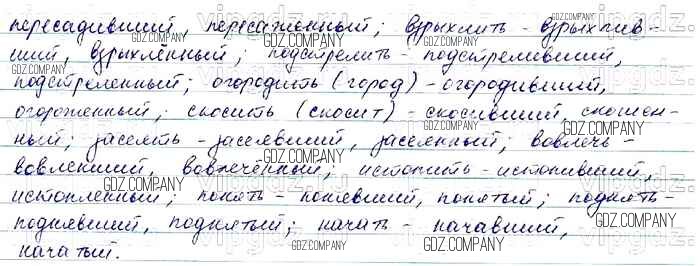 пересадивший, пересаженный; взрыхлить - взрыхлив-
ший, взрыхлённый; подстрелить - подстреливший,
подстреленный; огородить (город) - огородивший,
огороженный; скосить (скосит) - скосивший, скошен-
ный; заселить - заселивший, заселённый; вовлечь -
вовлекший, вовлечённый; истопить - истопивший,
истопленный; понять - понявший, понятый; поднять -
поднявший, поднятый; начать - начавший,
начатый.